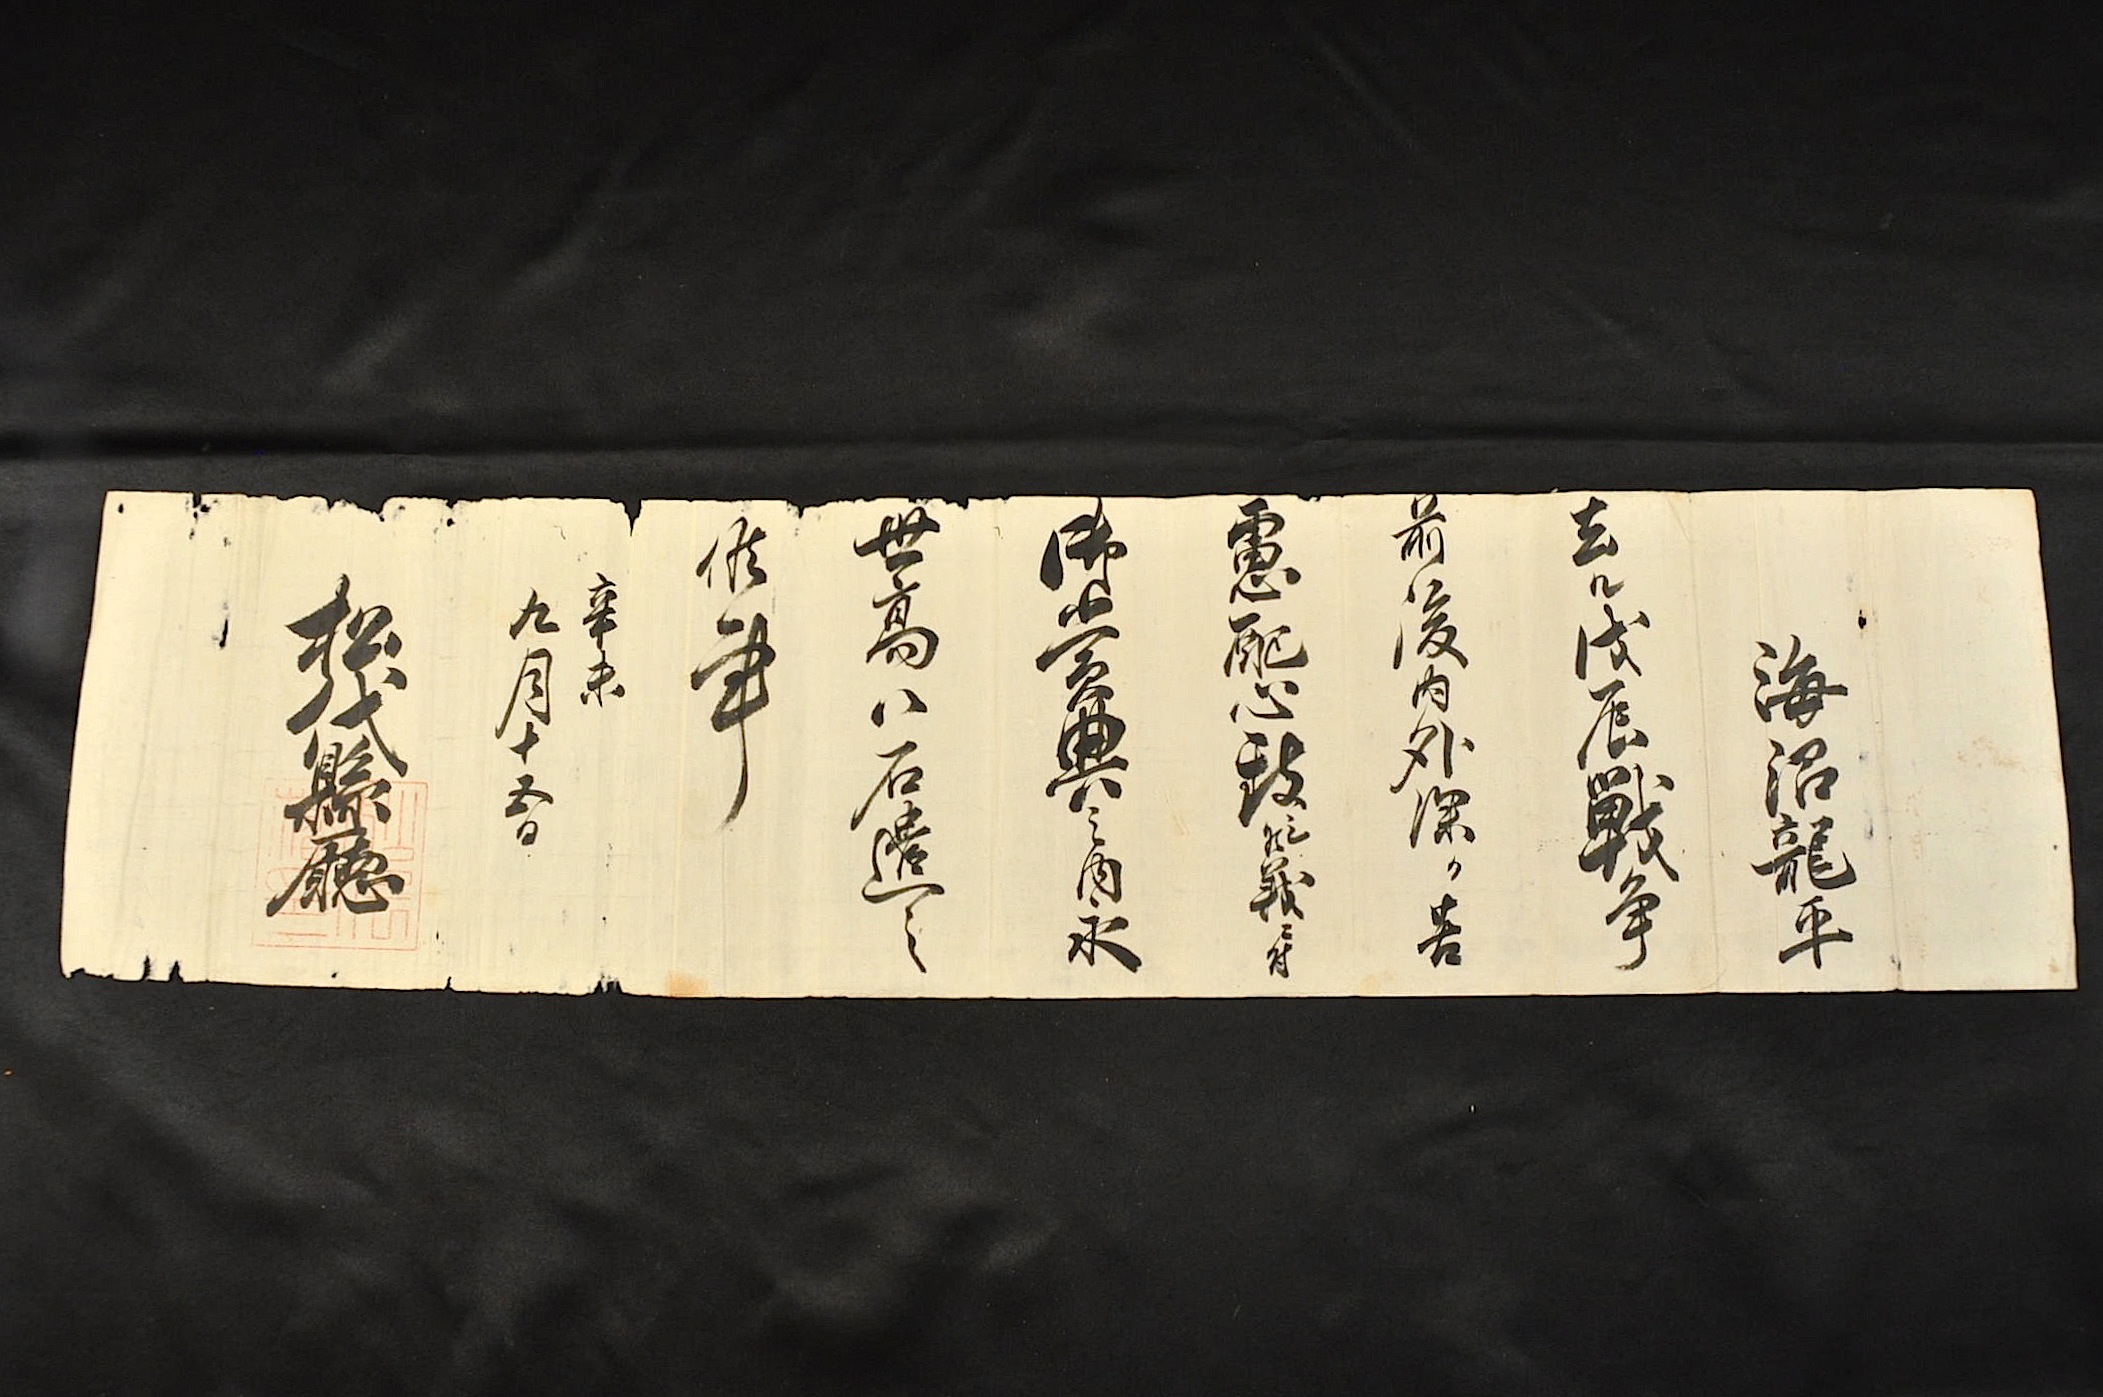 海沼龍平
去ル戊辰戦争
前後内外深ク苦
慮配心致候義ニ付
御賞典之内永
世高八石遣之
候事
辛未
九月十五日
松代縣廳